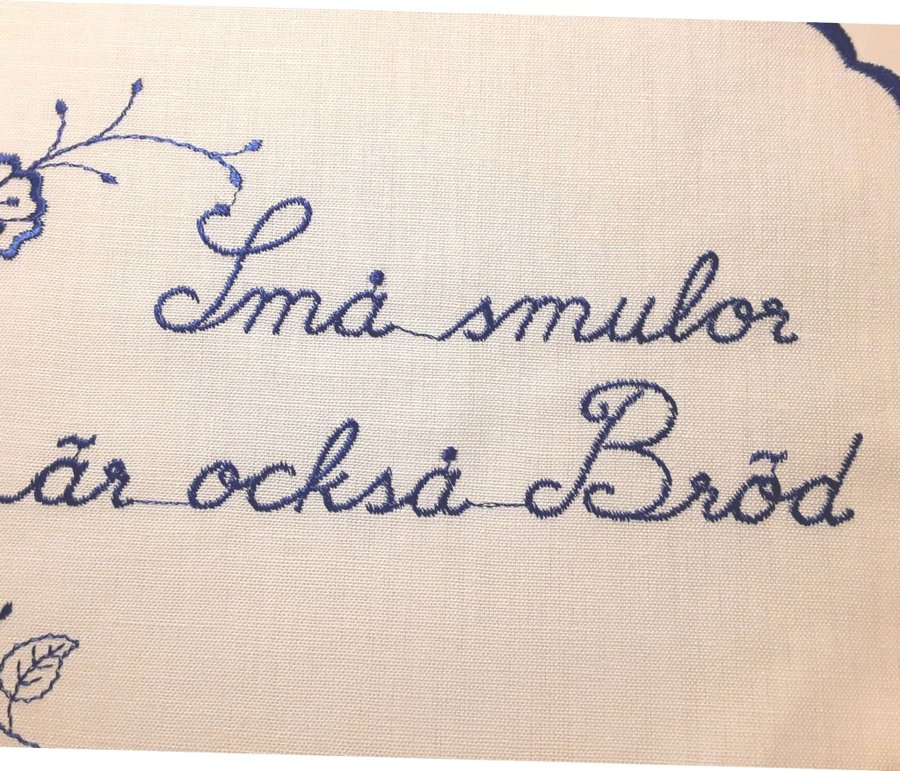 Små smulor
är också Bröd